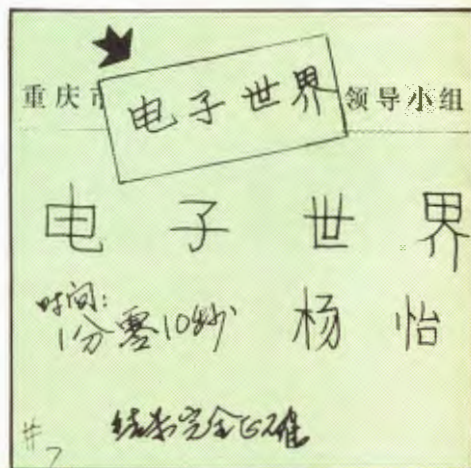 重庆市 电子世界 领导小组
电子世界
时间:
1分零10秒 杨怡
结果完全正确
#7